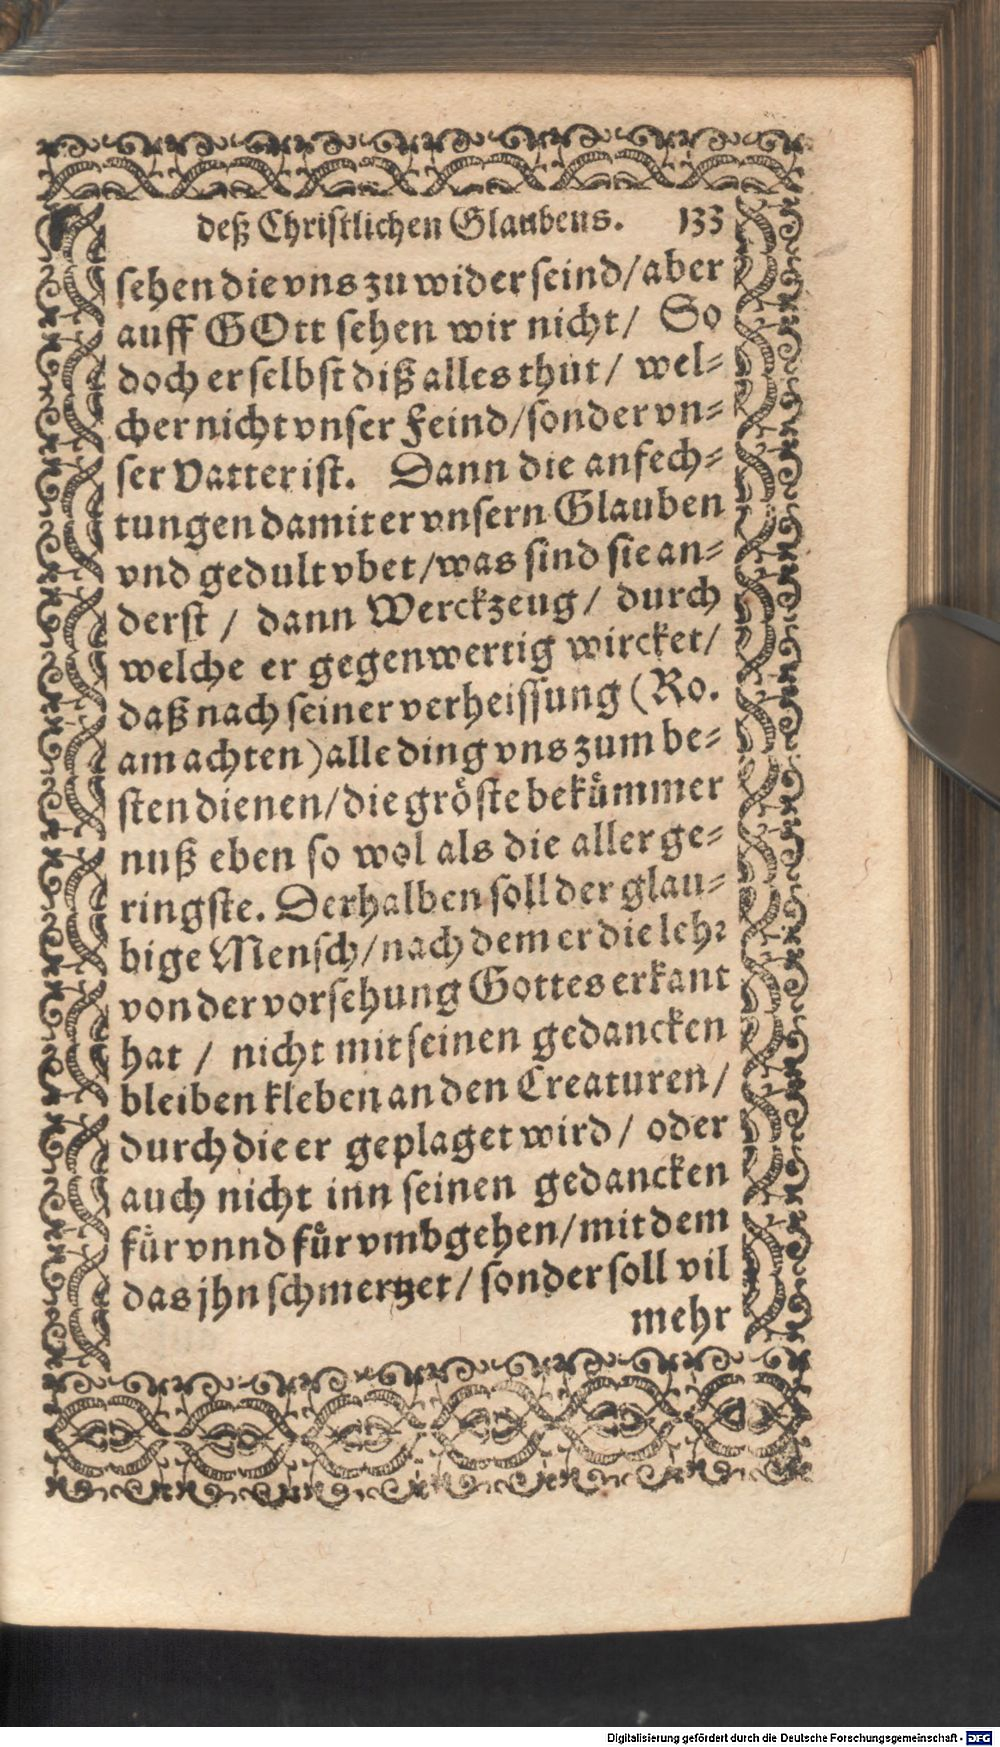 deß Christlichen Glaubens. 133
sehen die vns zu wider seind/aber
auff GOtt sehen wir nicht/ So
doch er selbst diß alles thut/ wel-
cher nicht vnser Feind/sonder vn-
ser Vatter ist. Dann die anfech-
tungen damit er vnsern Glauben
vnd gedult vbet/was sind sie an-
derst / dann Werckzeug/ durch
welche er gegenwertig wircket/
daß nach seiner verheissung (Ro.
am achten) alle ding vns zum be-
sten dienen/die gröste bekümmer
nuß eben so wol als die aller ge-
ringste. Derhalben soll der glau-
bige Mensch/nach dem er die lehr
von der vorsehung Gottes erkant
hat / nicht mit seinen gedancken
bleiben kleben an den Creaturen/
durch die er geplaget wird/ oder
auch nicht inn seinen gedancken
für vnnd für vmbgehen/mit dem
das jhn schmertzet/ sonder soll vil
mehr
Digitalisierung gefördert durch die Deutsche Forschungsgemeinschaft - DFG